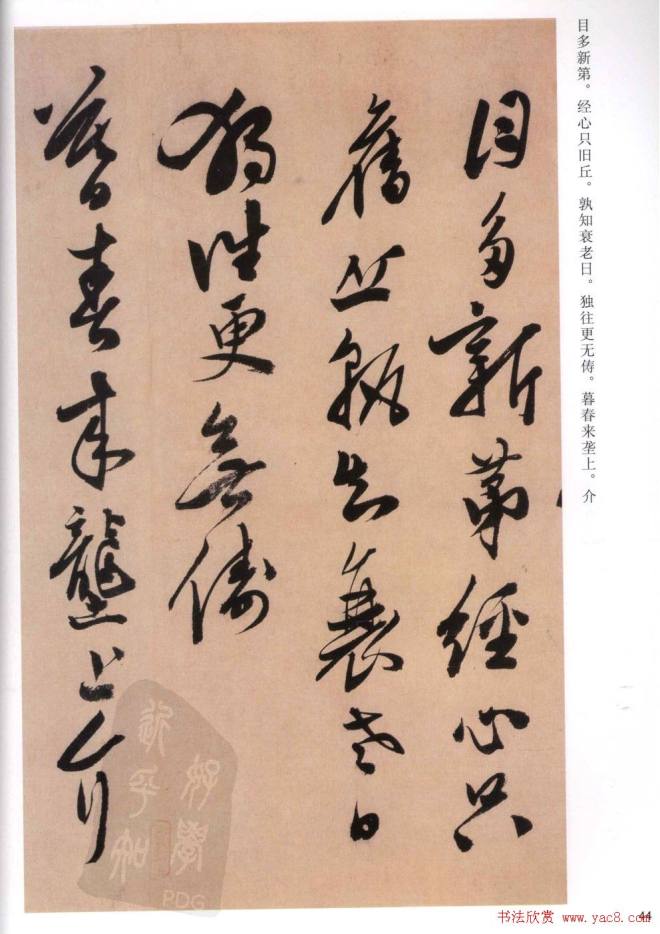 目多新第經心只
舊丘孰知衰老日
獨往更無儔
暮春来壟上介
目多新第。经心只旧丘。孰知衰老日。独往更无俦。暮春来垄上。介
好學
近乎知
PDG
44
书法欣赏 www.yac8.com